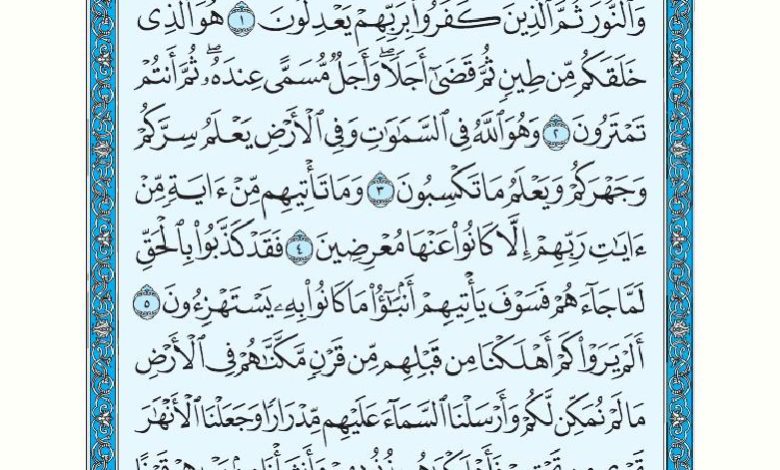 وَٱلنُّورَ ثُمَّ ٱلَّذِينَ كَفَرُوا۟ بِرَبِّهِمْ يَعْدِلُونَ ١ هُوَ ٱلَّذِى
خَلَقَكُم مِّن طِينٍ ثُمَّ قَضَىٰٓ أَجَلًا ۖ وَأَجَلٌ مُّسَمًّى عِندَهُۥ ۖ ثُمَّ أَنتُمْ
تَمْتَرُونَ ٢ وَهُوَ ٱللَّهُ فِى ٱلسَّمَٰوَٰتِ وَفِى ٱلْأَرْضِ يَعْلَمُ سِرَّكُمْ
وَجَهْرَكُمْ وَيَعْلَمُ مَا تَكْسِبُونَ ٣ وَمَا تَأْتِيهِم مِّنْ ءَايَةٍ مِّنْ
ءَايَٰتِ رَبِّهِمْ إِلَّا كَانُوا۟ عَنْهَا مُعْرِضِينَ ٤ فَقَدْ كَذَّبُوا۟ بِٱلْحَقِّ
لَمَّا جَآءَهُمْ فَسَوْفَ يَأْتِيهِمْ أَنۢبَٰٓؤُا۟ مَا كَانُوا۟ بِهِۦ يَسْتَهْزِءُونَ ٥
أَلَمْ يَرَوْا۟ كَمْ أَهْلَكْنَا مِن قَبْلِهِم مِّن قَرْنٍ مَّكَّنَّٰهُمْ فِى ٱلْأَرْضِ
مَا لَمْ نُمَكِّن لَّكُمْ وَأَرْسَلْنَا ٱلسَّمَآءَ عَلَيْهِم مِّدْرَارًا وَجَعَلْنَا ٱلْأَنْهَٰرَ